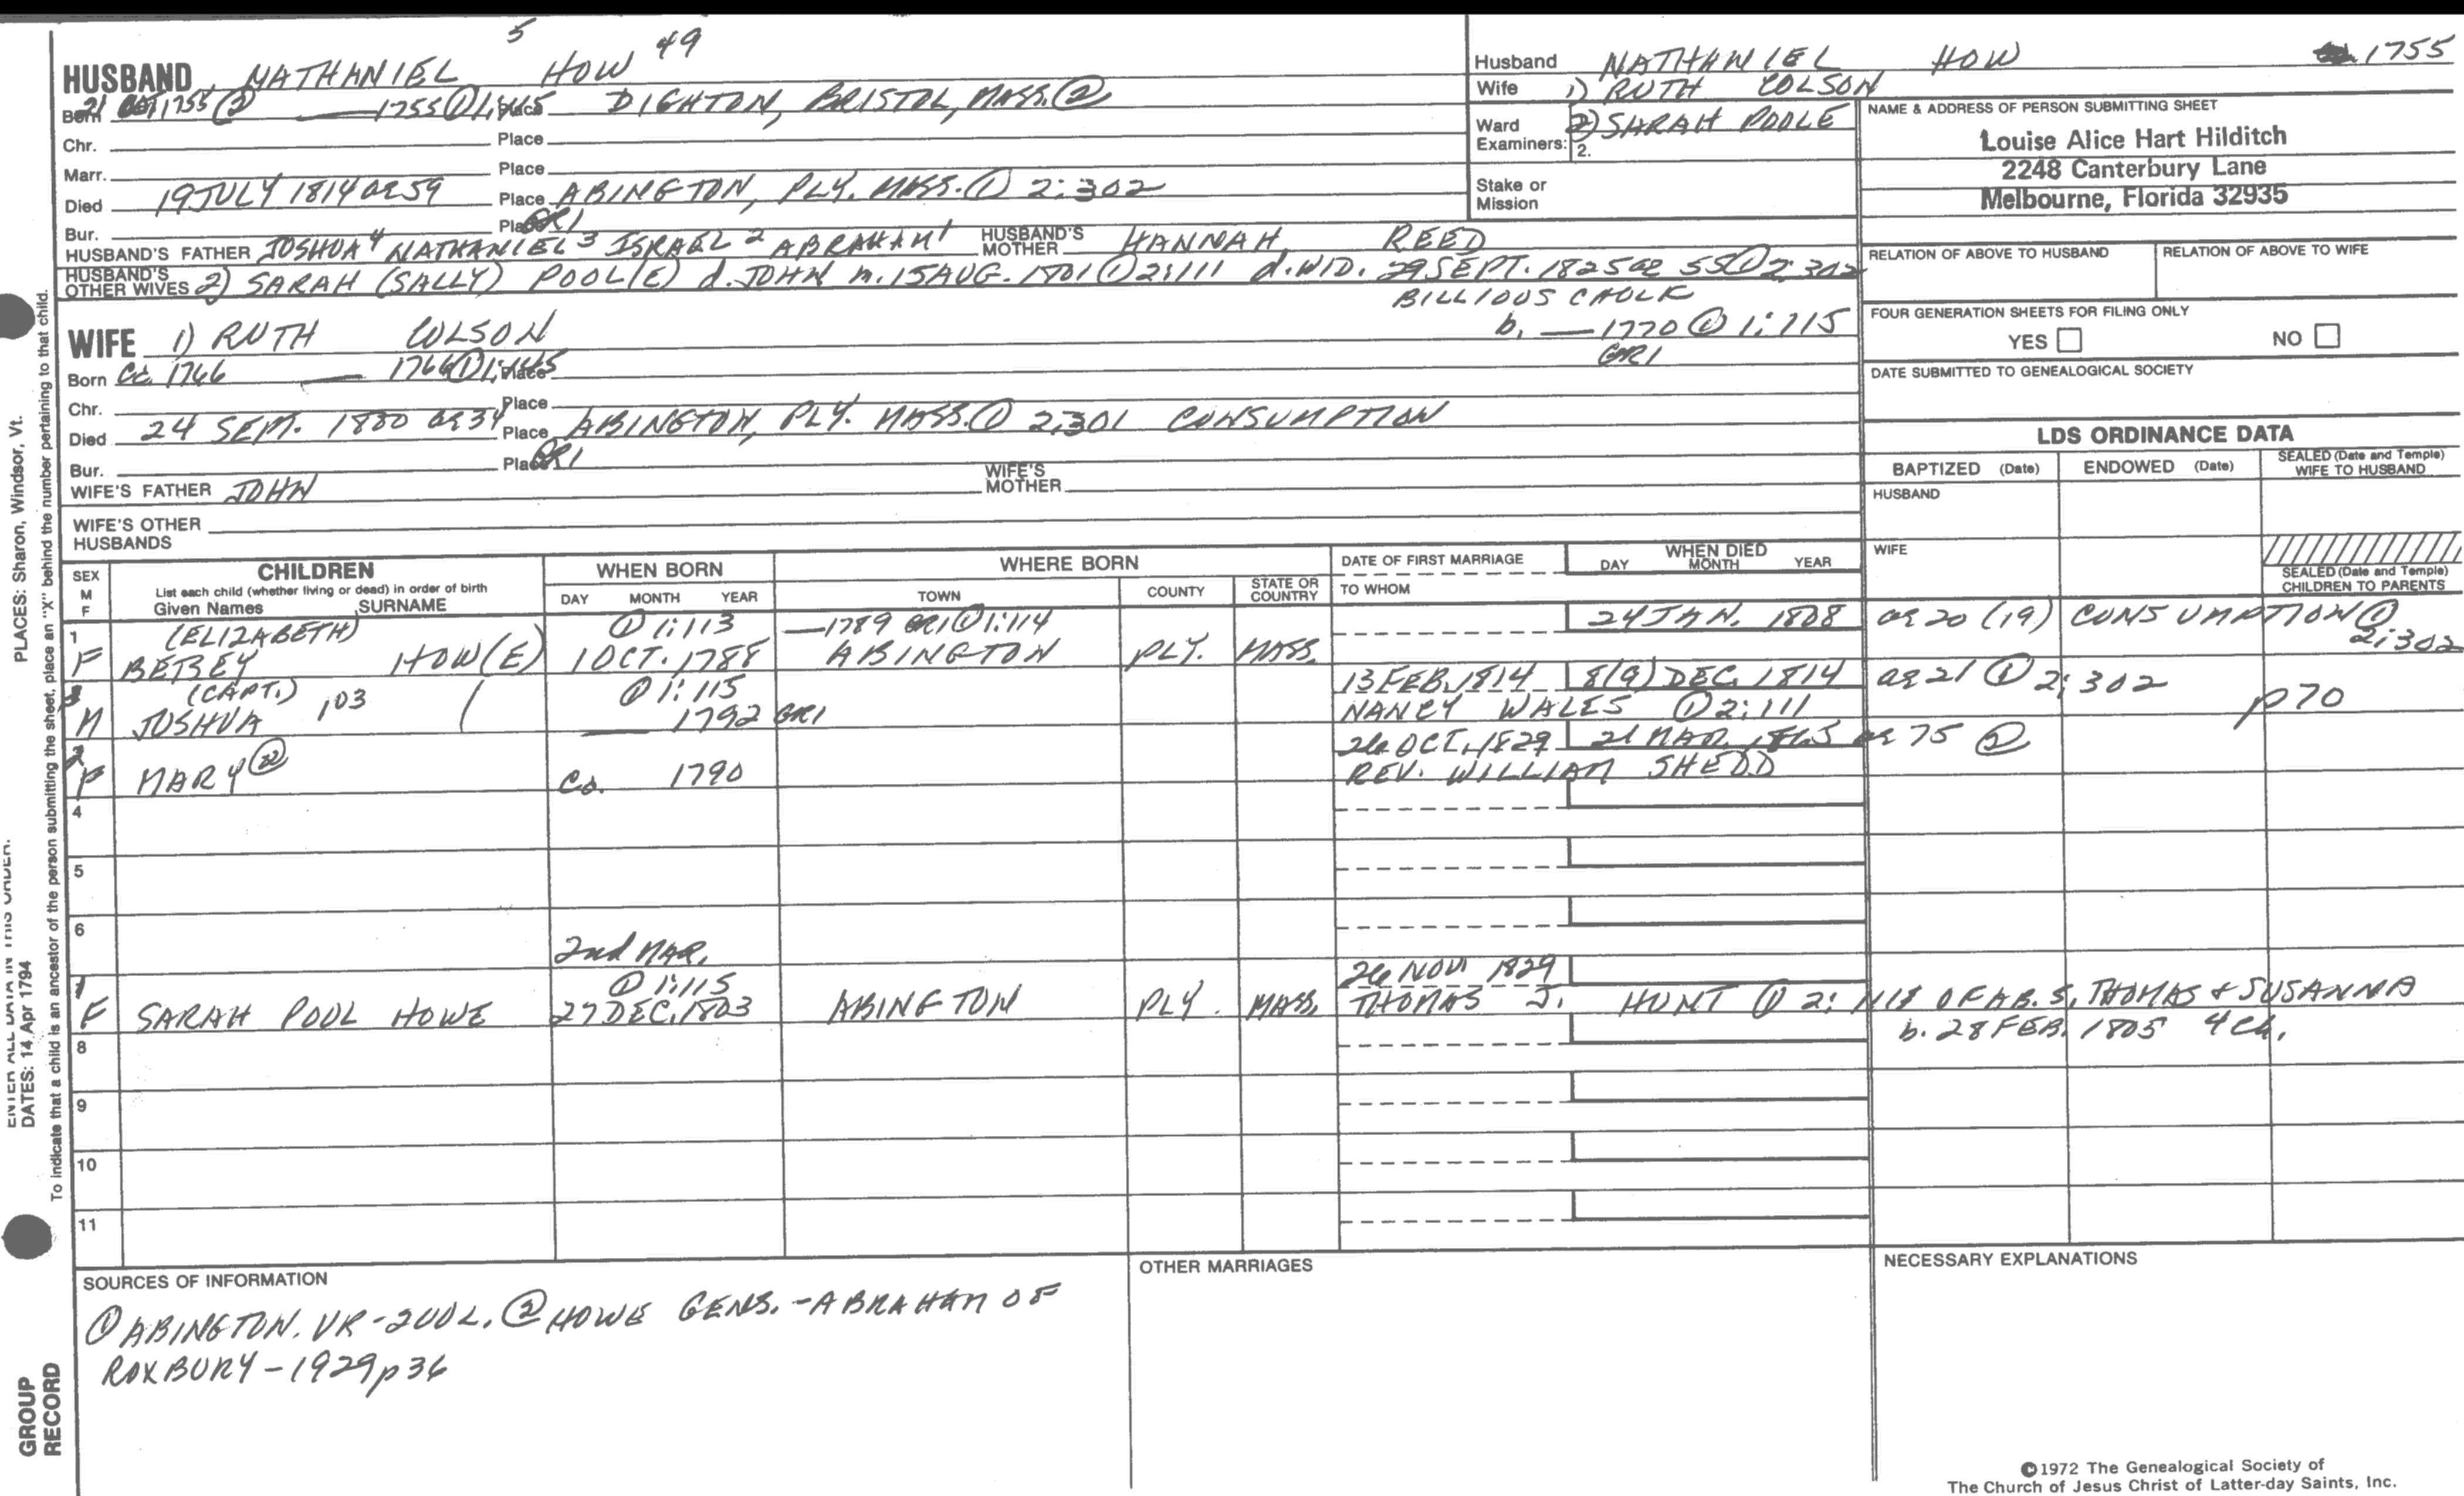 5
HUSBAND NATHANIEL HOW 49
Born 21 OCT 1755 ② — 1755 ① 1:115 Place DIGHTON, BRISTOL, MASS. ②
Chr. Place
Marr. Place
Died 19 JULY 1814 ae 59 Place ABINGTON, PLY. MASS. ① 2:302
Bur. Place GR1
HUSBAND'S FATHER JOSHUA 4 NATHANIEL 3 ISRAEL 2 ABRAHAM 1 HUSBAND'S MOTHER HANNAH REED
HUSBAND'S OTHER WIVES 2) SARAH (SALLY) POOL(E) d. JOHN m. 15 AUG. 1801 ① 2:111 d. WID. 29 SEPT. 1825 ae 55 ① 2:302
BILLIOUS CHOLK
b. — 1770 ① 1:115
GR1
WIFE 1) RUTH COLSON
Born Ca. 1766 — 1766 ① 1:115 Place
Chr. Place
Died 24 SEPT. 1800 ae 34 Place ABINGTON, PLY. MASS. ① 2:301 CONSUMPTION
Bur. Place GR1
WIFE'S FATHER JOHN WIFE'S MOTHER
WIFE'S OTHER HUSBANDS
Husband NATHANIEL HOW 1755
Wife 1) RUTH COLSON
Ward Examiners: 2) SARAH POOLE
2.
Stake or Mission
NAME & ADDRESS OF PERSON SUBMITTING SHEET
Louise Alice Hart Hilditch
2248 Canterbury Lane
Melbourne, Florida 32935
RELATION OF ABOVE TO HUSBAND RELATION OF ABOVE TO WIFE
FOUR GENERATION SHEETS FOR FILING ONLY
YES NO
DATE SUBMITTED TO GENEALOGICAL SOCIETY
LDS ORDINANCE DATA
BAPTIZED (Date) ENDOWED (Date) SEALED (Date and Temple) WIFE TO HUSBAND
HUSBAND
WIFE
SEALED (Date and Temple) CHILDREN TO PARENTS
SEX M F CHILDREN WHEN BORN WHERE BORN DATE OF FIRST MARRIAGE WHEN DIED
List each child (whether living or dead) in order of birth
Given Names SURNAME DAY MONTH YEAR TOWN COUNTY STATE OR COUNTRY TO WHOM DAY MONTH YEAR
1 (ELIZABETH) ① 1:113 — 1789 GR1 ① 1:114 24 JAN. 1808 ae 20 (19) CONSUMPTION ① 2:302
F BETSEY HOW(E) 1 OCT. 1788 ABINGTON PLY. MASS.
3 (CAPT.) ① 1:115 13 FEB. 1814 8(9) DEC. 1814 ae 21 ① 2:302
M JOSHUA 103 — 1792 GR1 NANCY WALES ① 2:111 p70
2 26 OCT. 1829 21 MAR. ae 75 ②
F MARY ② Ca. 1790 REV. WILLIAM SHEDD
4
5
6
2nd MAR.
7 ① 1:115 26 NOV 1829
F SARAH POOL HOWE 27 DEC. 1803 ABINGTON PLY. MASS. THOMAS J. HUNT ① 2: OF AB. S. THOMAS & SUSANNA
b. 28 FEB. 1805 4 Ch.
8
9
10
11
SOURCES OF INFORMATION
① ABINGTON. VR - 2 VOL. ② HOWE GENS. - ABRAHAM OF
ROXBURY - 1929 p 36
OTHER MARRIAGES
NECESSARY EXPLANATIONS
©1972 The Genealogical Society of
The Church of Jesus Christ of Latter-day Saints, Inc.
PLACES: Sharon, Windsor, Vt.
ENTER ALL DATA IN THIS ORDER:
DATES: 14 Apr 1794
To indicate that a child is an ancestor of the person submitting the sheet, place an "X" behind the number pertaining to that child.
GROUP
RECORD